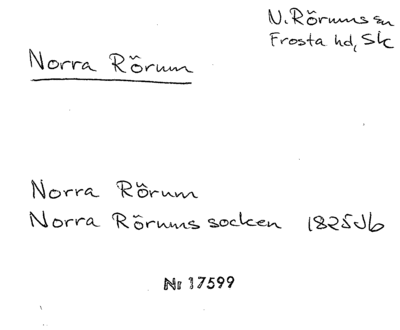 N. Rörums sn
Frosta hd, Sk
Norra Rörum
Norra Rörum
Norra Rörums socken 1825 Jb
Nr 17599